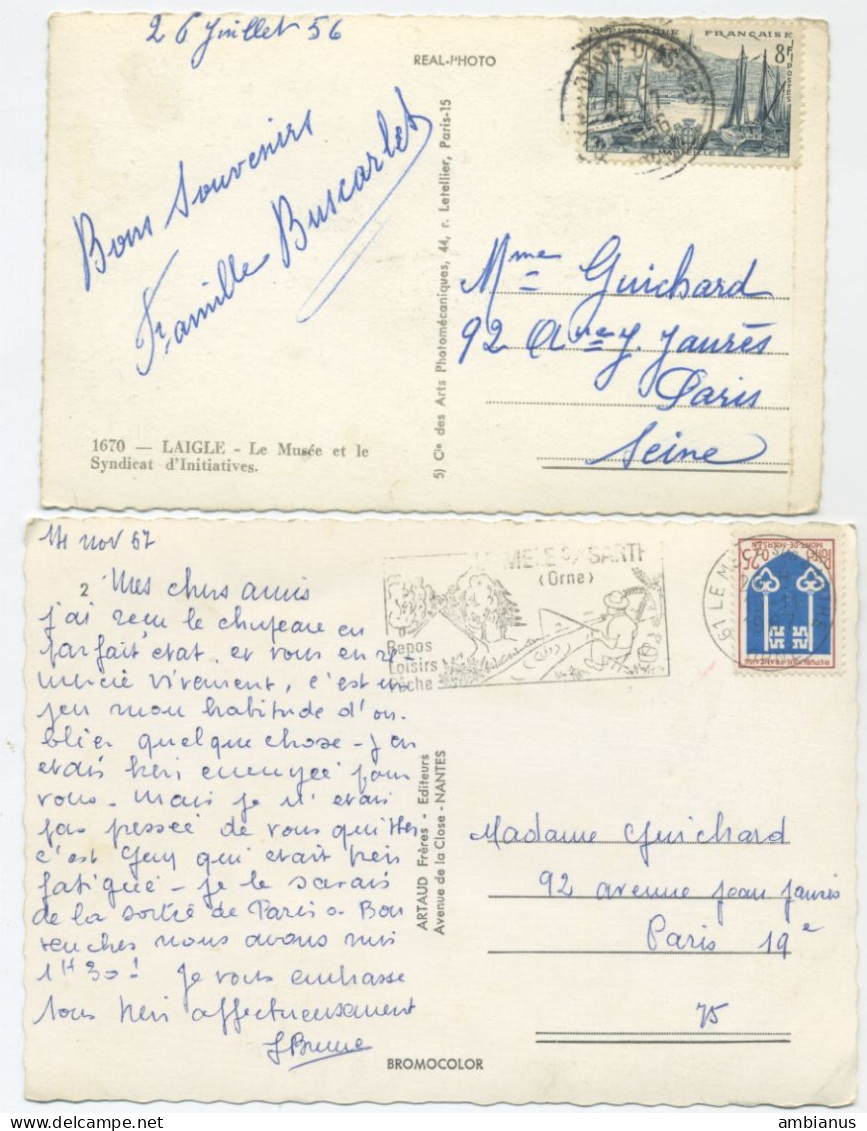 26 Juillet 56
REAL-PHOTO
FRANÇAISE
8F
POSTES
Bons Souvenirs
Famille Buscarlet
5) Cie des Arts Photomécaniques, 44, r. Letellier, Paris-15
Mme Guichard
92 Ave J. Jaurès
Paris
Seine
1670 — LAIGLE - Le Musée et le
Syndicat d'Initiatives.
14 nov 67
2
Mes chers amis
j'ai reçu le chapeau en
parfait état et vous en re-
mercie vivement, c'est un
peu mon habitude d'ou-
blier quelque chose - j'en
étais très ennuyée pour
vous - Mais je n'étais
pas pressée de vous quitter
c'est Guy qui était très
fatigué - je le savais
de la sortie de Paris a Bon
nous avons mis
1H30! Je vous embrasse
tous très affectueusement
LE MELE S/ SARTHE
(Orne)
Repos
Loisirs
Pêche
61 LE M
0,25
MONT-DE-MARSAN
REPUBLIQUE FRANÇAISE
ARTAUD Frères - Editeurs
Avenue de la Close - NANTES
Madame Guichard
92 avenue Jean Jaurès
Paris 19e
75
BROMOCOLOR
ambianus